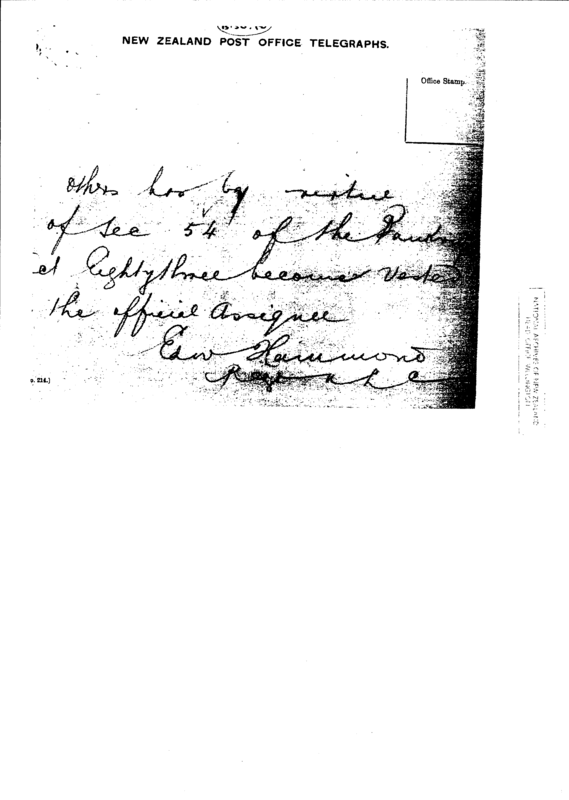 NEW ZEALAND POST OFFICE TELEGRAPHS.
Office Stamp.
others has by virtue
of Sec 54 of the
Eightythree become Vested
the official assignee
Edw Hammond
p. 214.]
NATIONAL ARCHIVES OF NEW ZEALAND
HEAD OFFICE, WELLINGTON